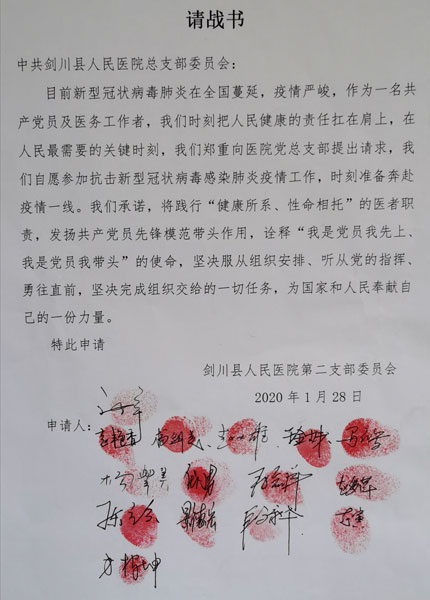 请战书
中共剑川县人民医院总支部委员会：
目前新型冠状病毒肺炎在全国蔓延，疫情严峻，作为一名共
产党员及医务工作者，我们时刻把人民健康的责任扛在肩上，在
人民最需要的关键时刻，我们郑重向医院党总支部提出请求，我
们自愿参加抗击新型冠状病毒感染肺炎疫情工作，时刻准备奔赴
疫情一线。我们承诺，将践行“健康所系、性命相托”的医者职
责，发扬共产党员先锋模范带头作用，诠释“我是党员我先上、
我是党员我带头”的使命，坚决服从组织安排、听从党的指挥、
勇往直前，坚决完成组织交给的一切任务，为国家和人民奉献自
己的一份力量。
特此申请
剑川县人民医院第二支部委员会
2020年1月28日
申请人：